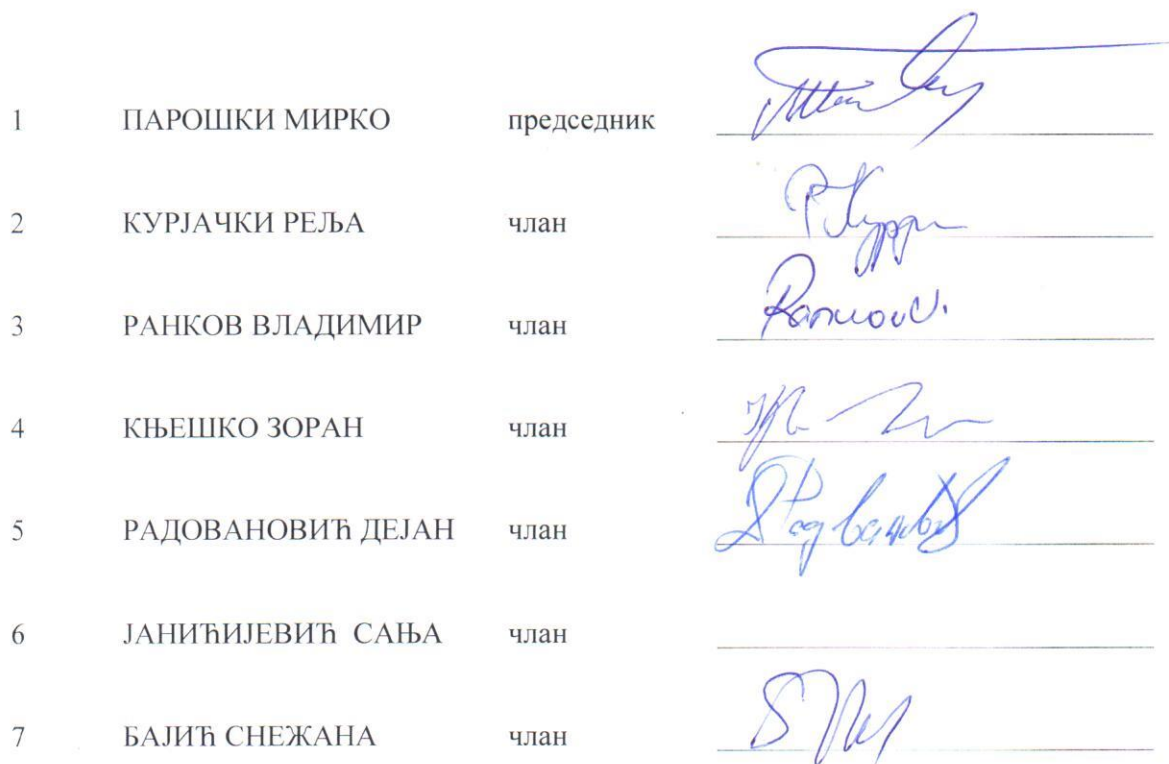 1 ПАРОШКИ МИРКО председник
2 КУРЈАЧКИ РЕЉА члан
3 РАНКОВ ВЛАДИМИР члан
4 КЊЕШКО ЗОРАН члан
5 РАДОВАНОВИЋ ДЕЈАН члан
6 ЈАНИЋИЈЕВИЋ САЊА члан
7 БАЈИЋ СНЕЖАНА члан